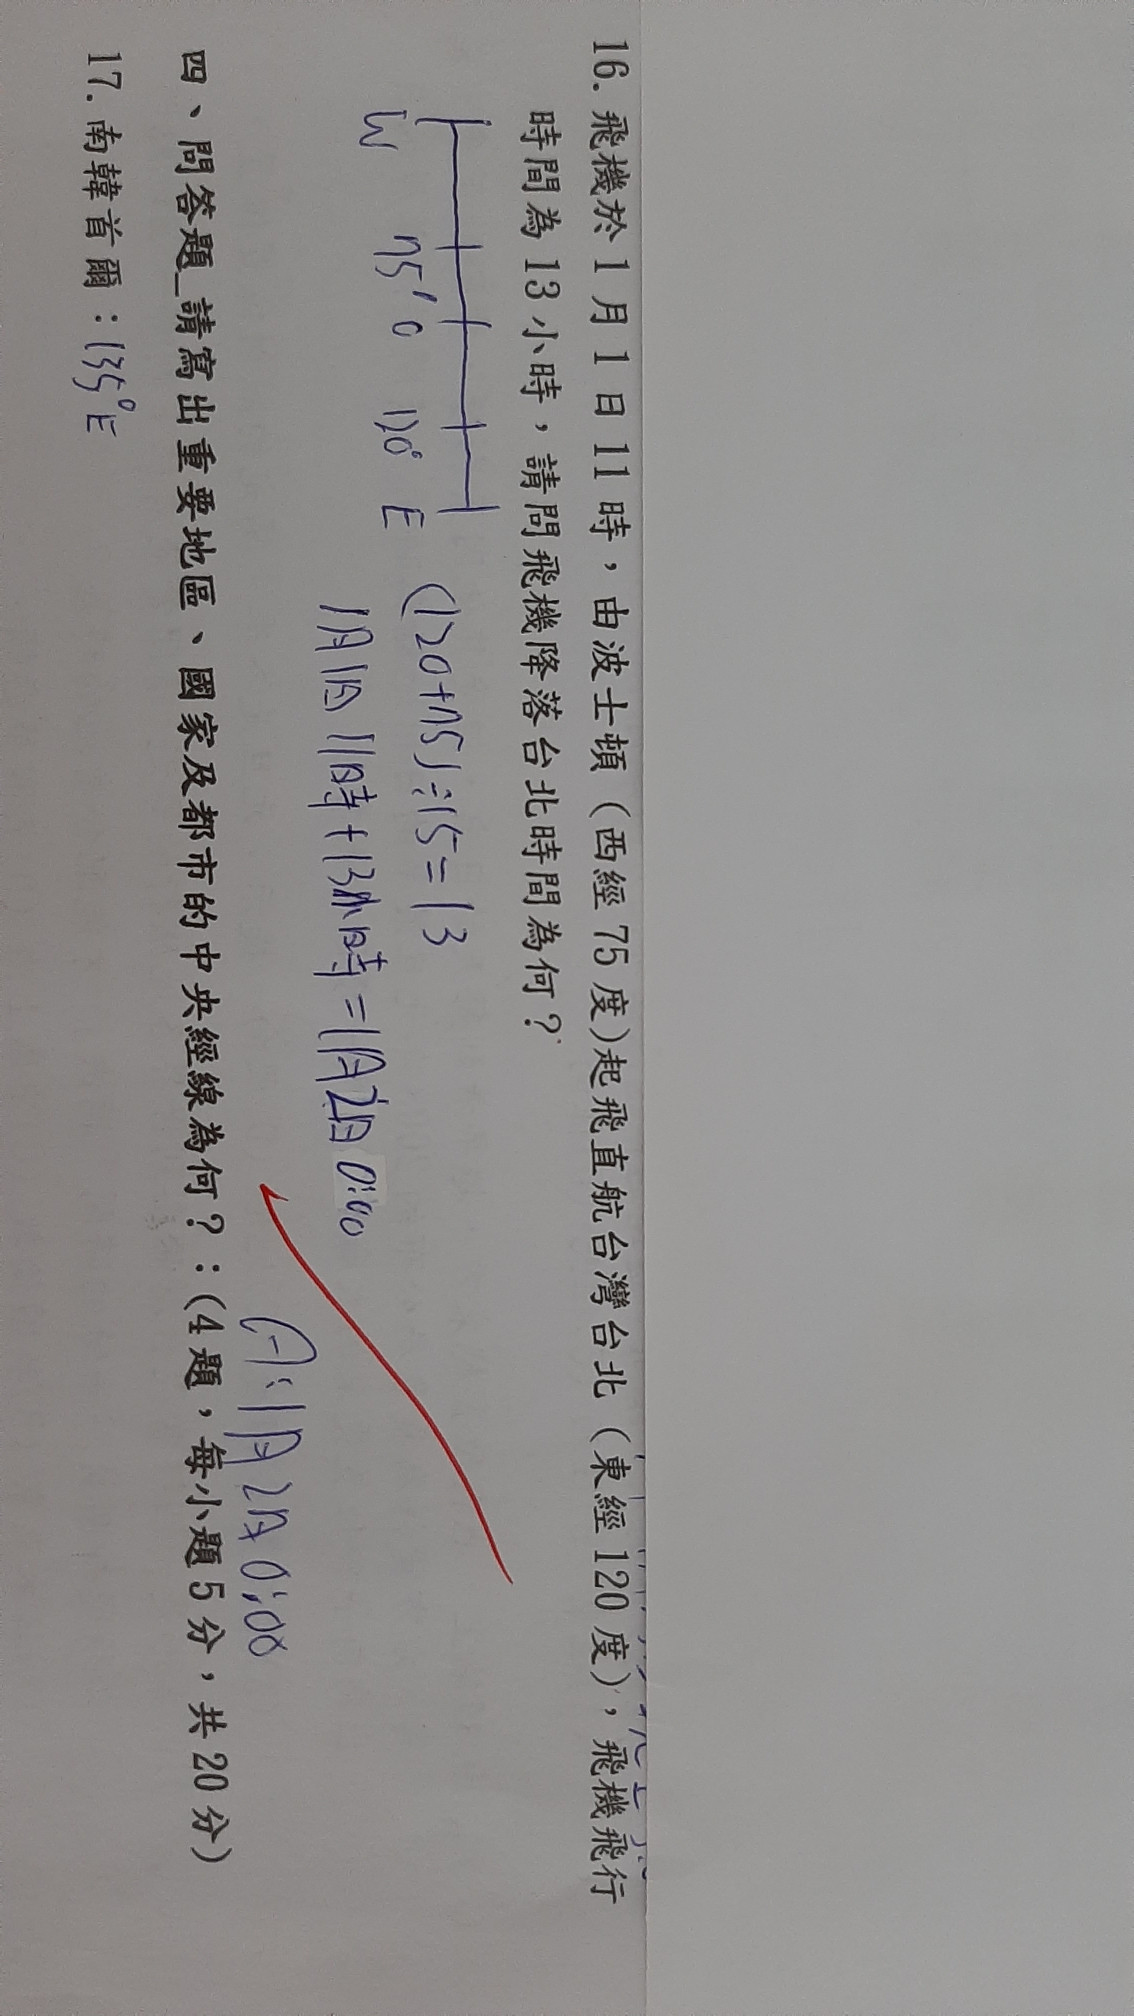 16. 飛機於 1 月 1 日 11 時，由波士頓（西經 75 度)起飛直航台灣台北（東經 120 度)，飛機飛行
時間為 13 小時，請問飛機降落台北時間為何？
W 75° 0 120° E
(120+75)÷15=13
1月1日 11時+13小時=1月2日 0:00
A:1月2日 0:00
四、問答題_請寫出重要地區、國家及都市的中央經線為何？:(4 題，每小題 5 分，共 20 分)
17. 南韓首爾：135°E